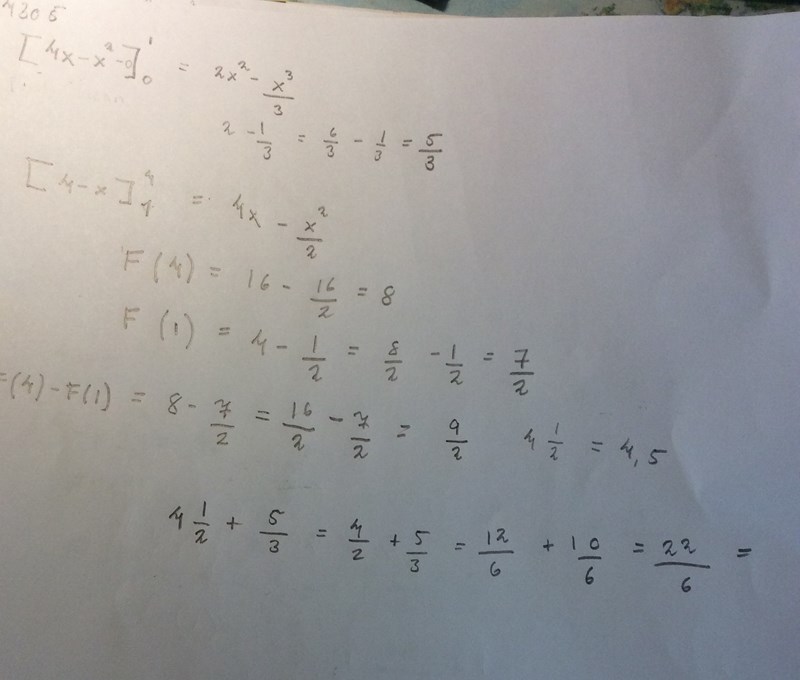 4205
[4x - x² - 0]₀¹ = 2x² - x³/3
2 - 1/3 = 6/3 - 1/3 = 5/3
[4 - x]₁⁴ = 4x - x²/2
F(4) = 16 - 16/2 = 8
F(1) = 4 - 1/2 = 8/2 - 1/2 = 7/2
F(4) - F(1) = 8 - 7/2 = 16/2 - 7/2 = 9/2 4 1/2 = 4,5
4 1/2 + 5/3 = 4/2 + 5/3 = 12/6 + 10/6 = 22/6 =